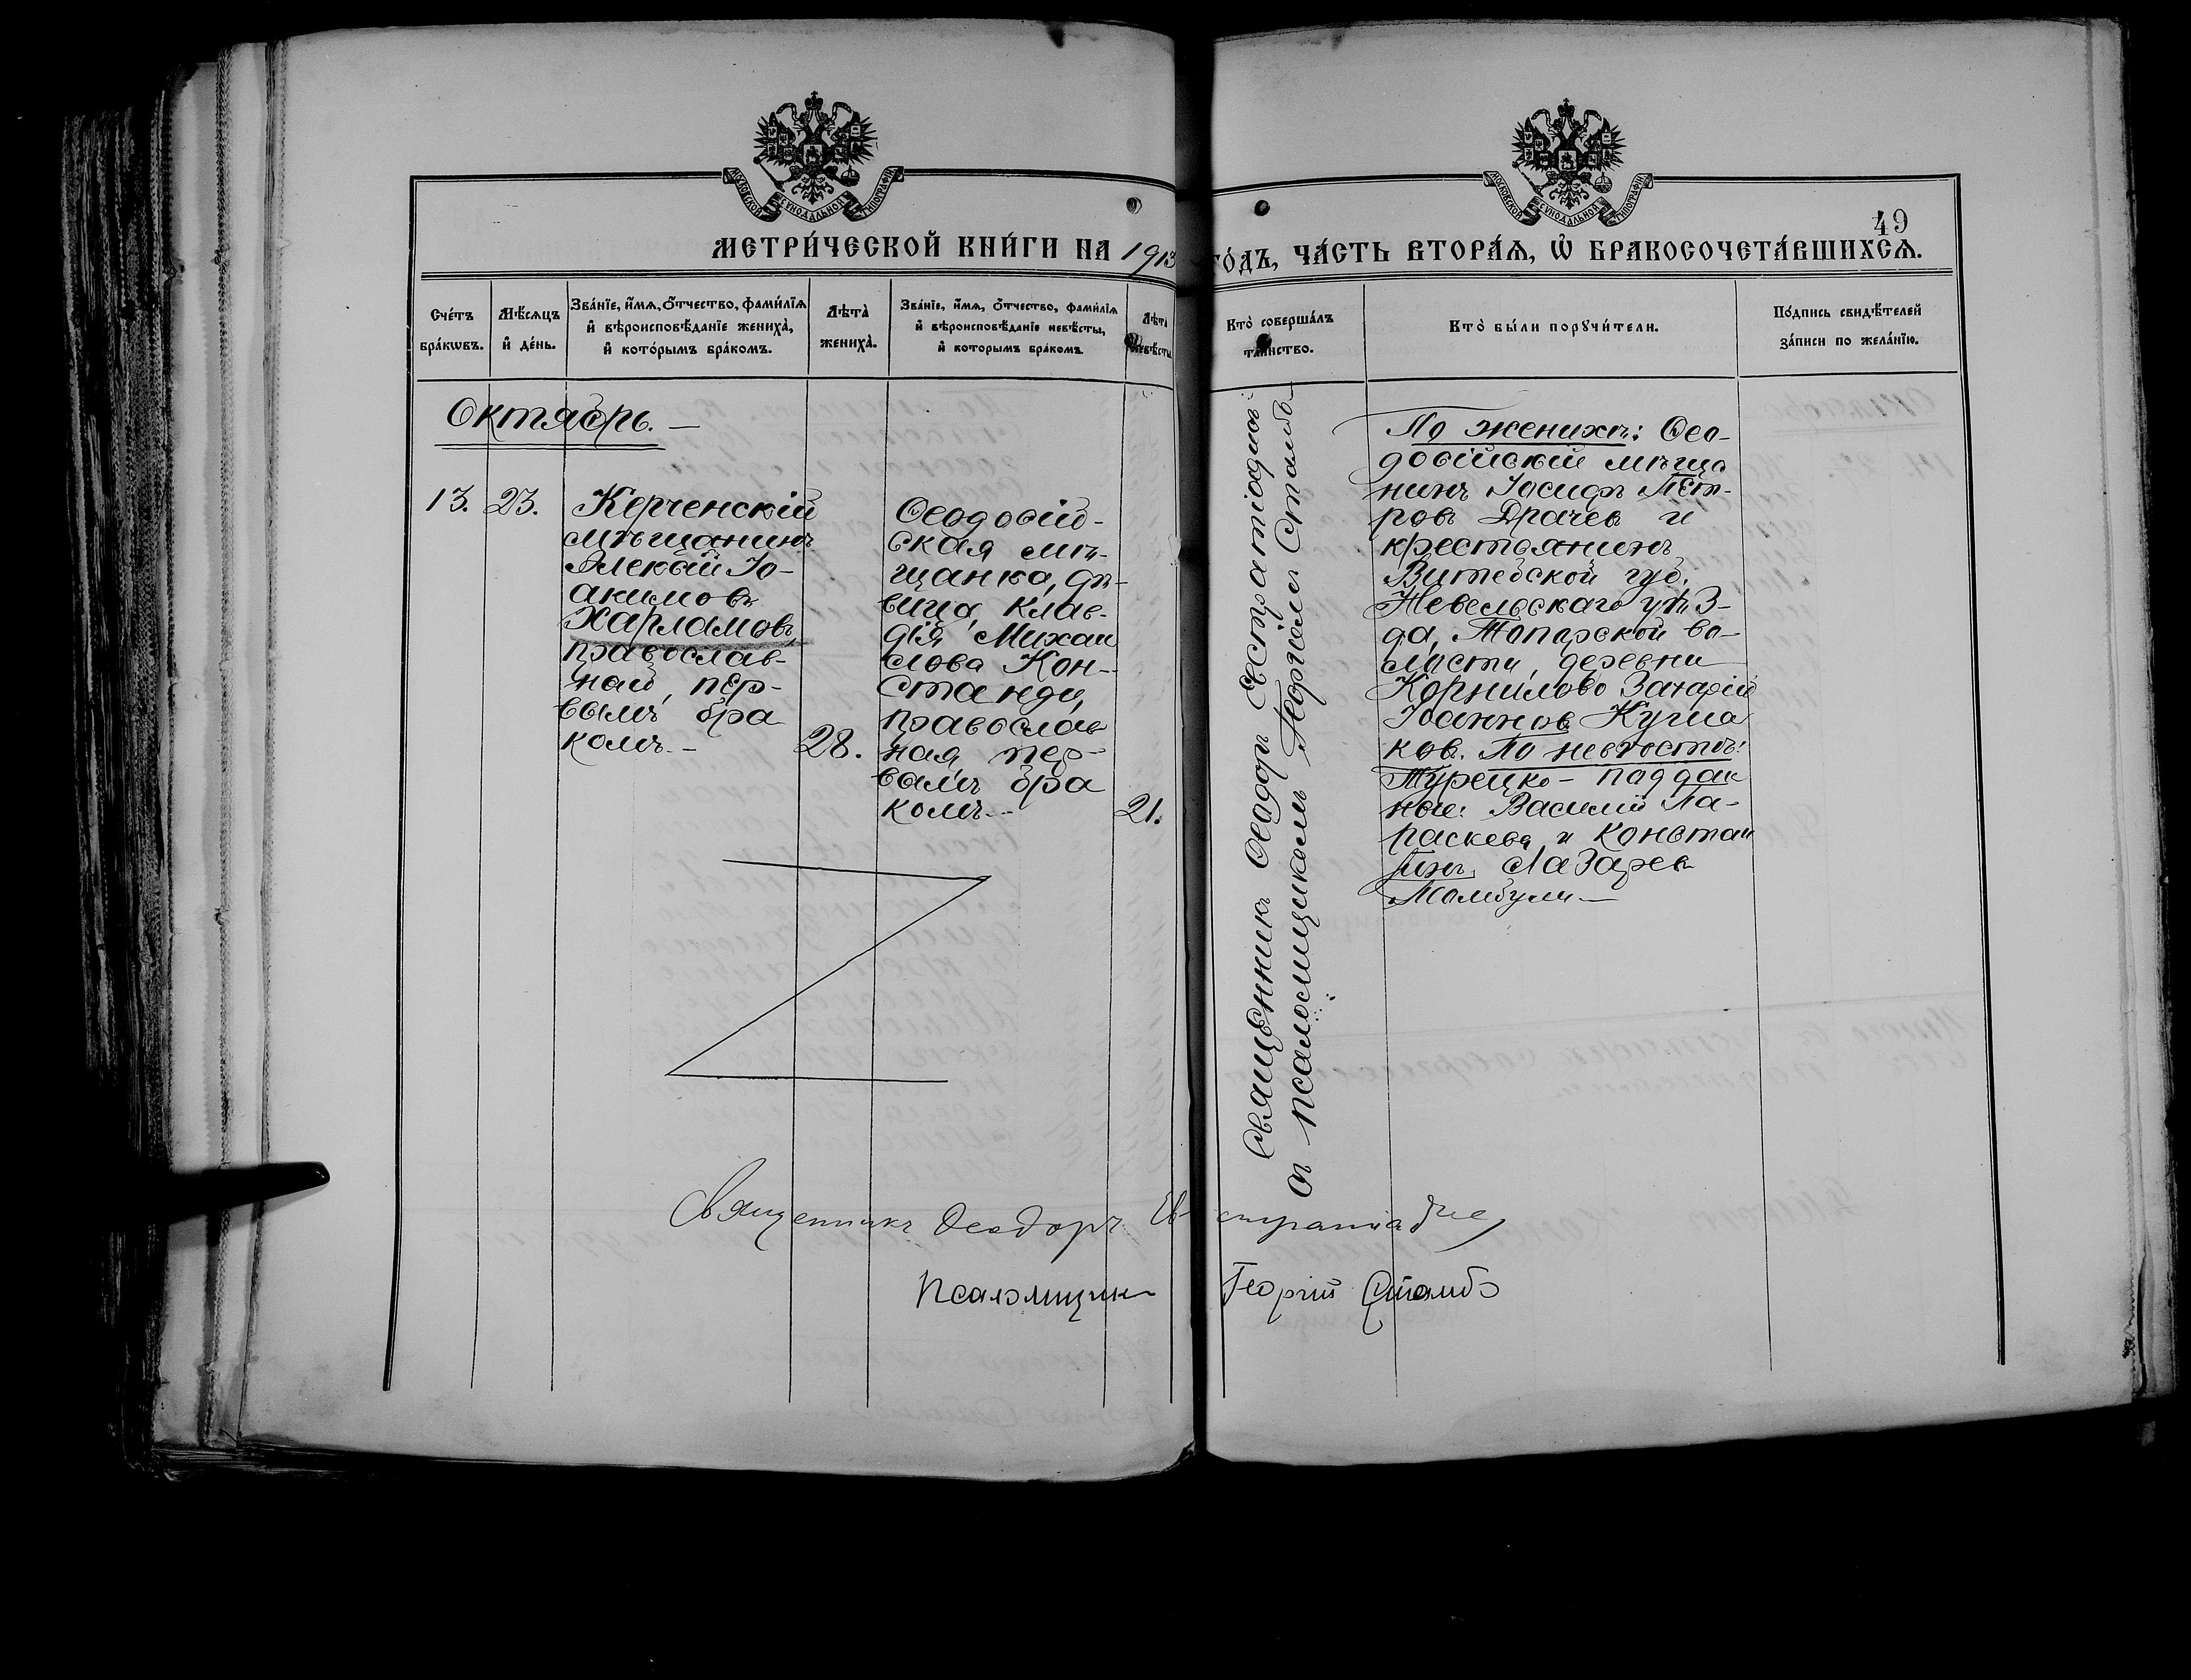 МОСКОВСКОЙ СѴНОДАЛЬНОЙ ТИПОГРАФІИ
МОСКОВСКОЙ СѴНОДАЛЬНОЙ ТИПОГРАФІИ
49
МЕТРИ́ЧЕСКОЙ КНИ́ГИ НА 1913 ГО́ДЪ, ЧА́СТЬ ВТОРА́Я, Ѡ҆ БРАКОСОЧЕТА́ВШИХСѦ.
Сче́тъ
бра́кѡвъ.
Мѣ́сѧцъ
и҆ де́нь.
Зва́нїе, и҆́мѧ, ѻ҆́тчество, фами́лїѧ
и҆ вѣроисповѣ́данїе жениха̀,
и҆ кото́рымъ бра́комъ.
Лѣта̀
жениха̀.
Зва́нїе, и҆́мѧ, ѻ҆́тчество, фами́лїѧ
и҆ вѣроисповѣ́данїе невѣ́сты,
и҆ которымъ бра́комъ.
Лѣта̀
невѣ́сты.
Кто̀ соверша́лъ
таинство.
Кто̀ бы́ли порꙋчи́тели.
По́дпись свидѣ́телей
за́писи по жела́нїю.
Октябрь. —
13.
23.
Керченскій
мѣщанинъ
Алексѣй Іо-
акимовъ
Харламовъ,
православ-
ный, пер-
вымъ бра
комъ. —
28.
Ѳеодосій-
ская мѣ-
щанка, дѣ-
вица, Клав-
дія Михаи
лова Кон-
станди,
православ
ная пер-
вымъ бра
комъ. —
21.
Священникъ Ѳеодоръ Евстратіадисъ
съ псаломщикомъ Георгіемъ Стамбо
По женихѣ: Ѳео-
досійскій мѣща
нинъ Іосифъ Пет-
ровъ Драчевъ и
крестьянинъ
Витебской губ.
Невельскаго уѣз-
да, Топорской во-
лости, деревни
Корнилово Захарій
Іоанновъ Кучма
ковъ. По невѣстѣ:
Турецко-поддан
ные: Василій Па-
раскева и Констан
тинъ Лазаревъ
Момбули —
Священникъ Ѳеодоръ Евстратіадис
Псаломщикъ Георгій Стамбо